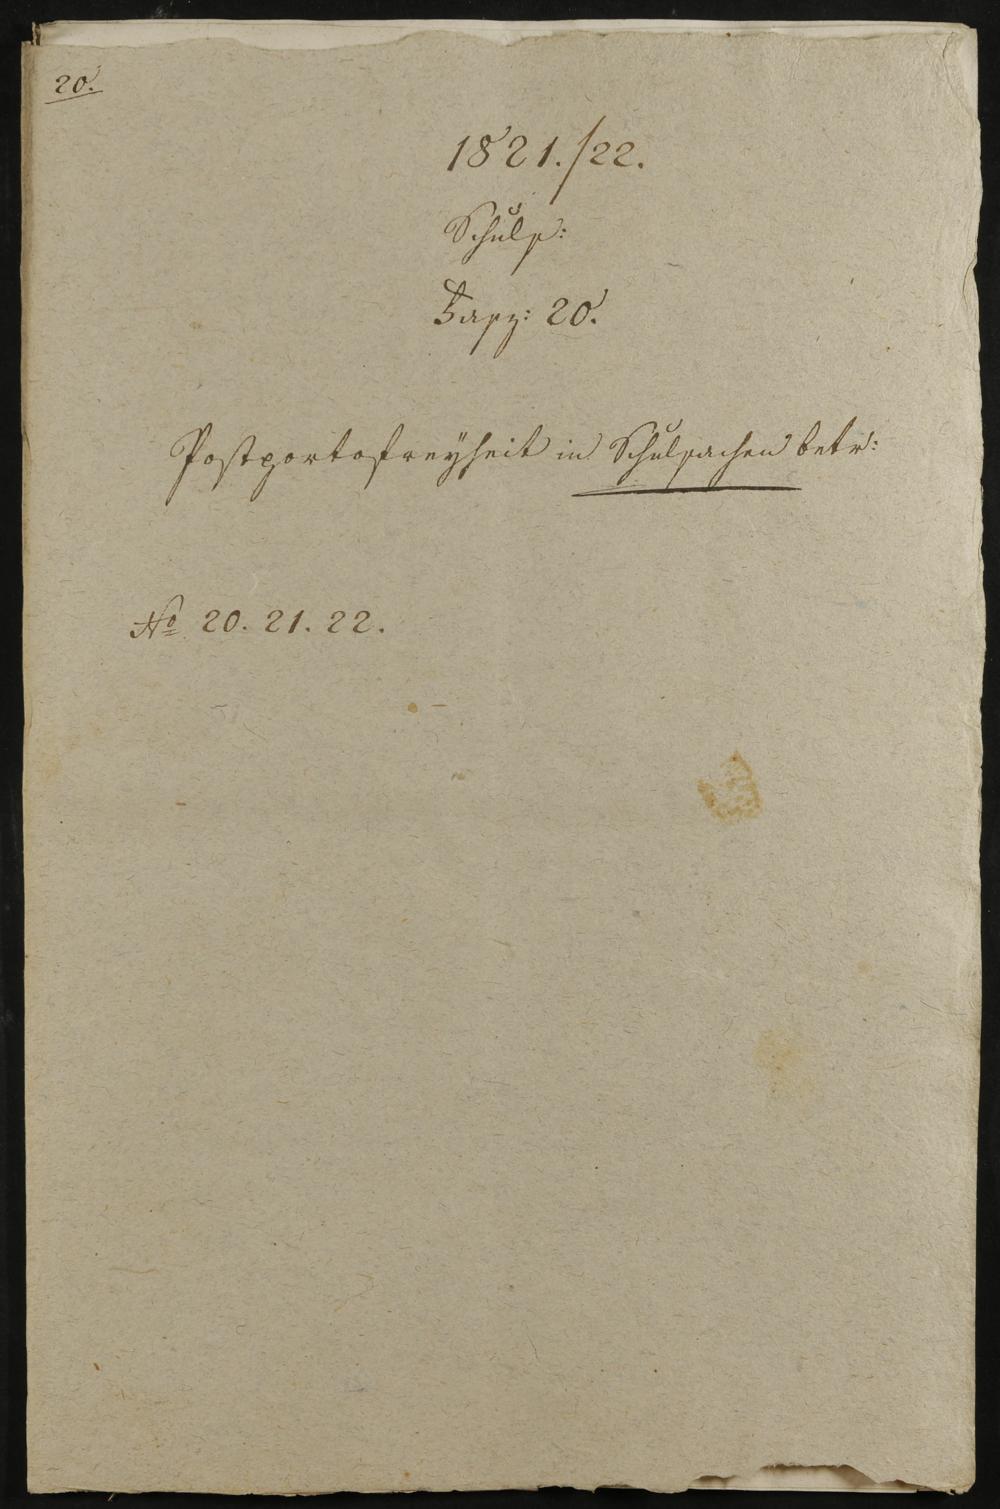 20.
1821./22.
Schuls:
Fasz: 20.
Postportofreyheit in Schulsachen betr:
No 20. 21. 22.